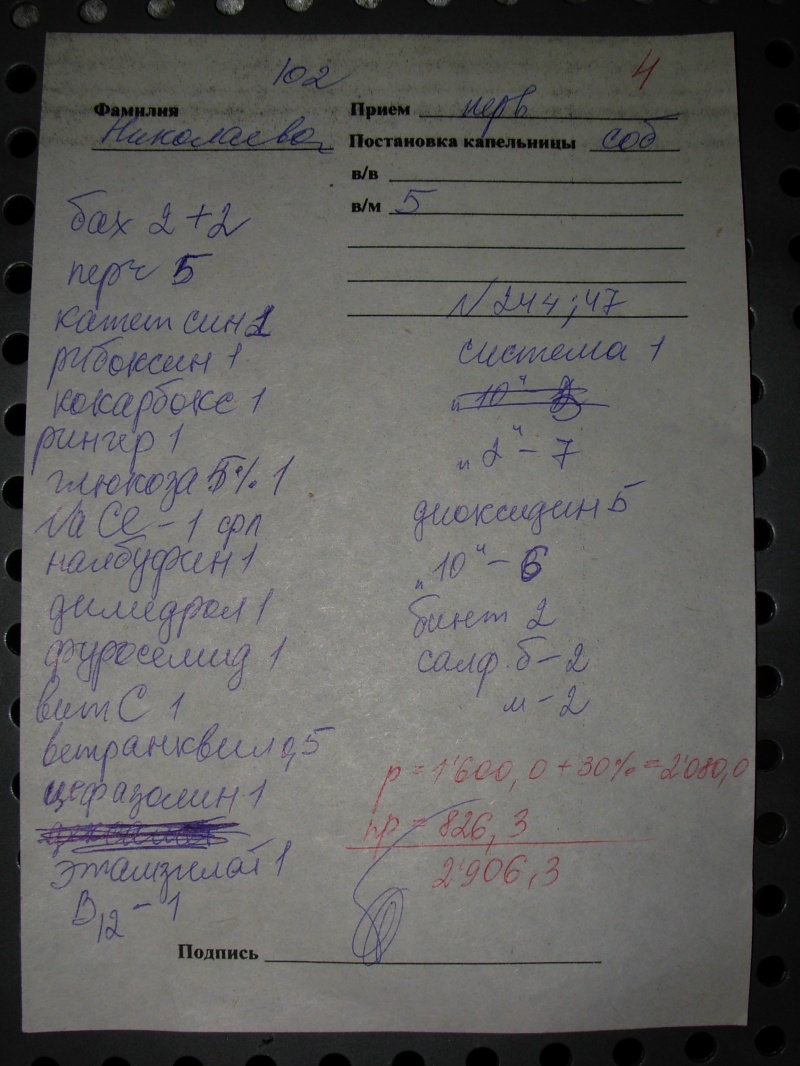 102
4
Фамилия Николаева
Прием перв
Постановка капельницы соб
в/в
в/м 5
бах 2+2
перч 5
катет син 1
рибоксин 1
кокарбокс 1
рингер 1
глюкоза 5% 1
NaCl - 1 фл
налбуфин 1
димедрол 1
фуросемид 1
вит С 1
ветранквил 0,5
цефазолин 1
этамзилат 1
B12 - 1
N 244; 47
система 1
"10"
"2" - 7
диоксидин 5
"10" - 6
бинт 2
салф. б - 2
м - 2
р = 1'600,0 + 30% = 2'080,0
пр = 826,3
2'906,3
Подпись